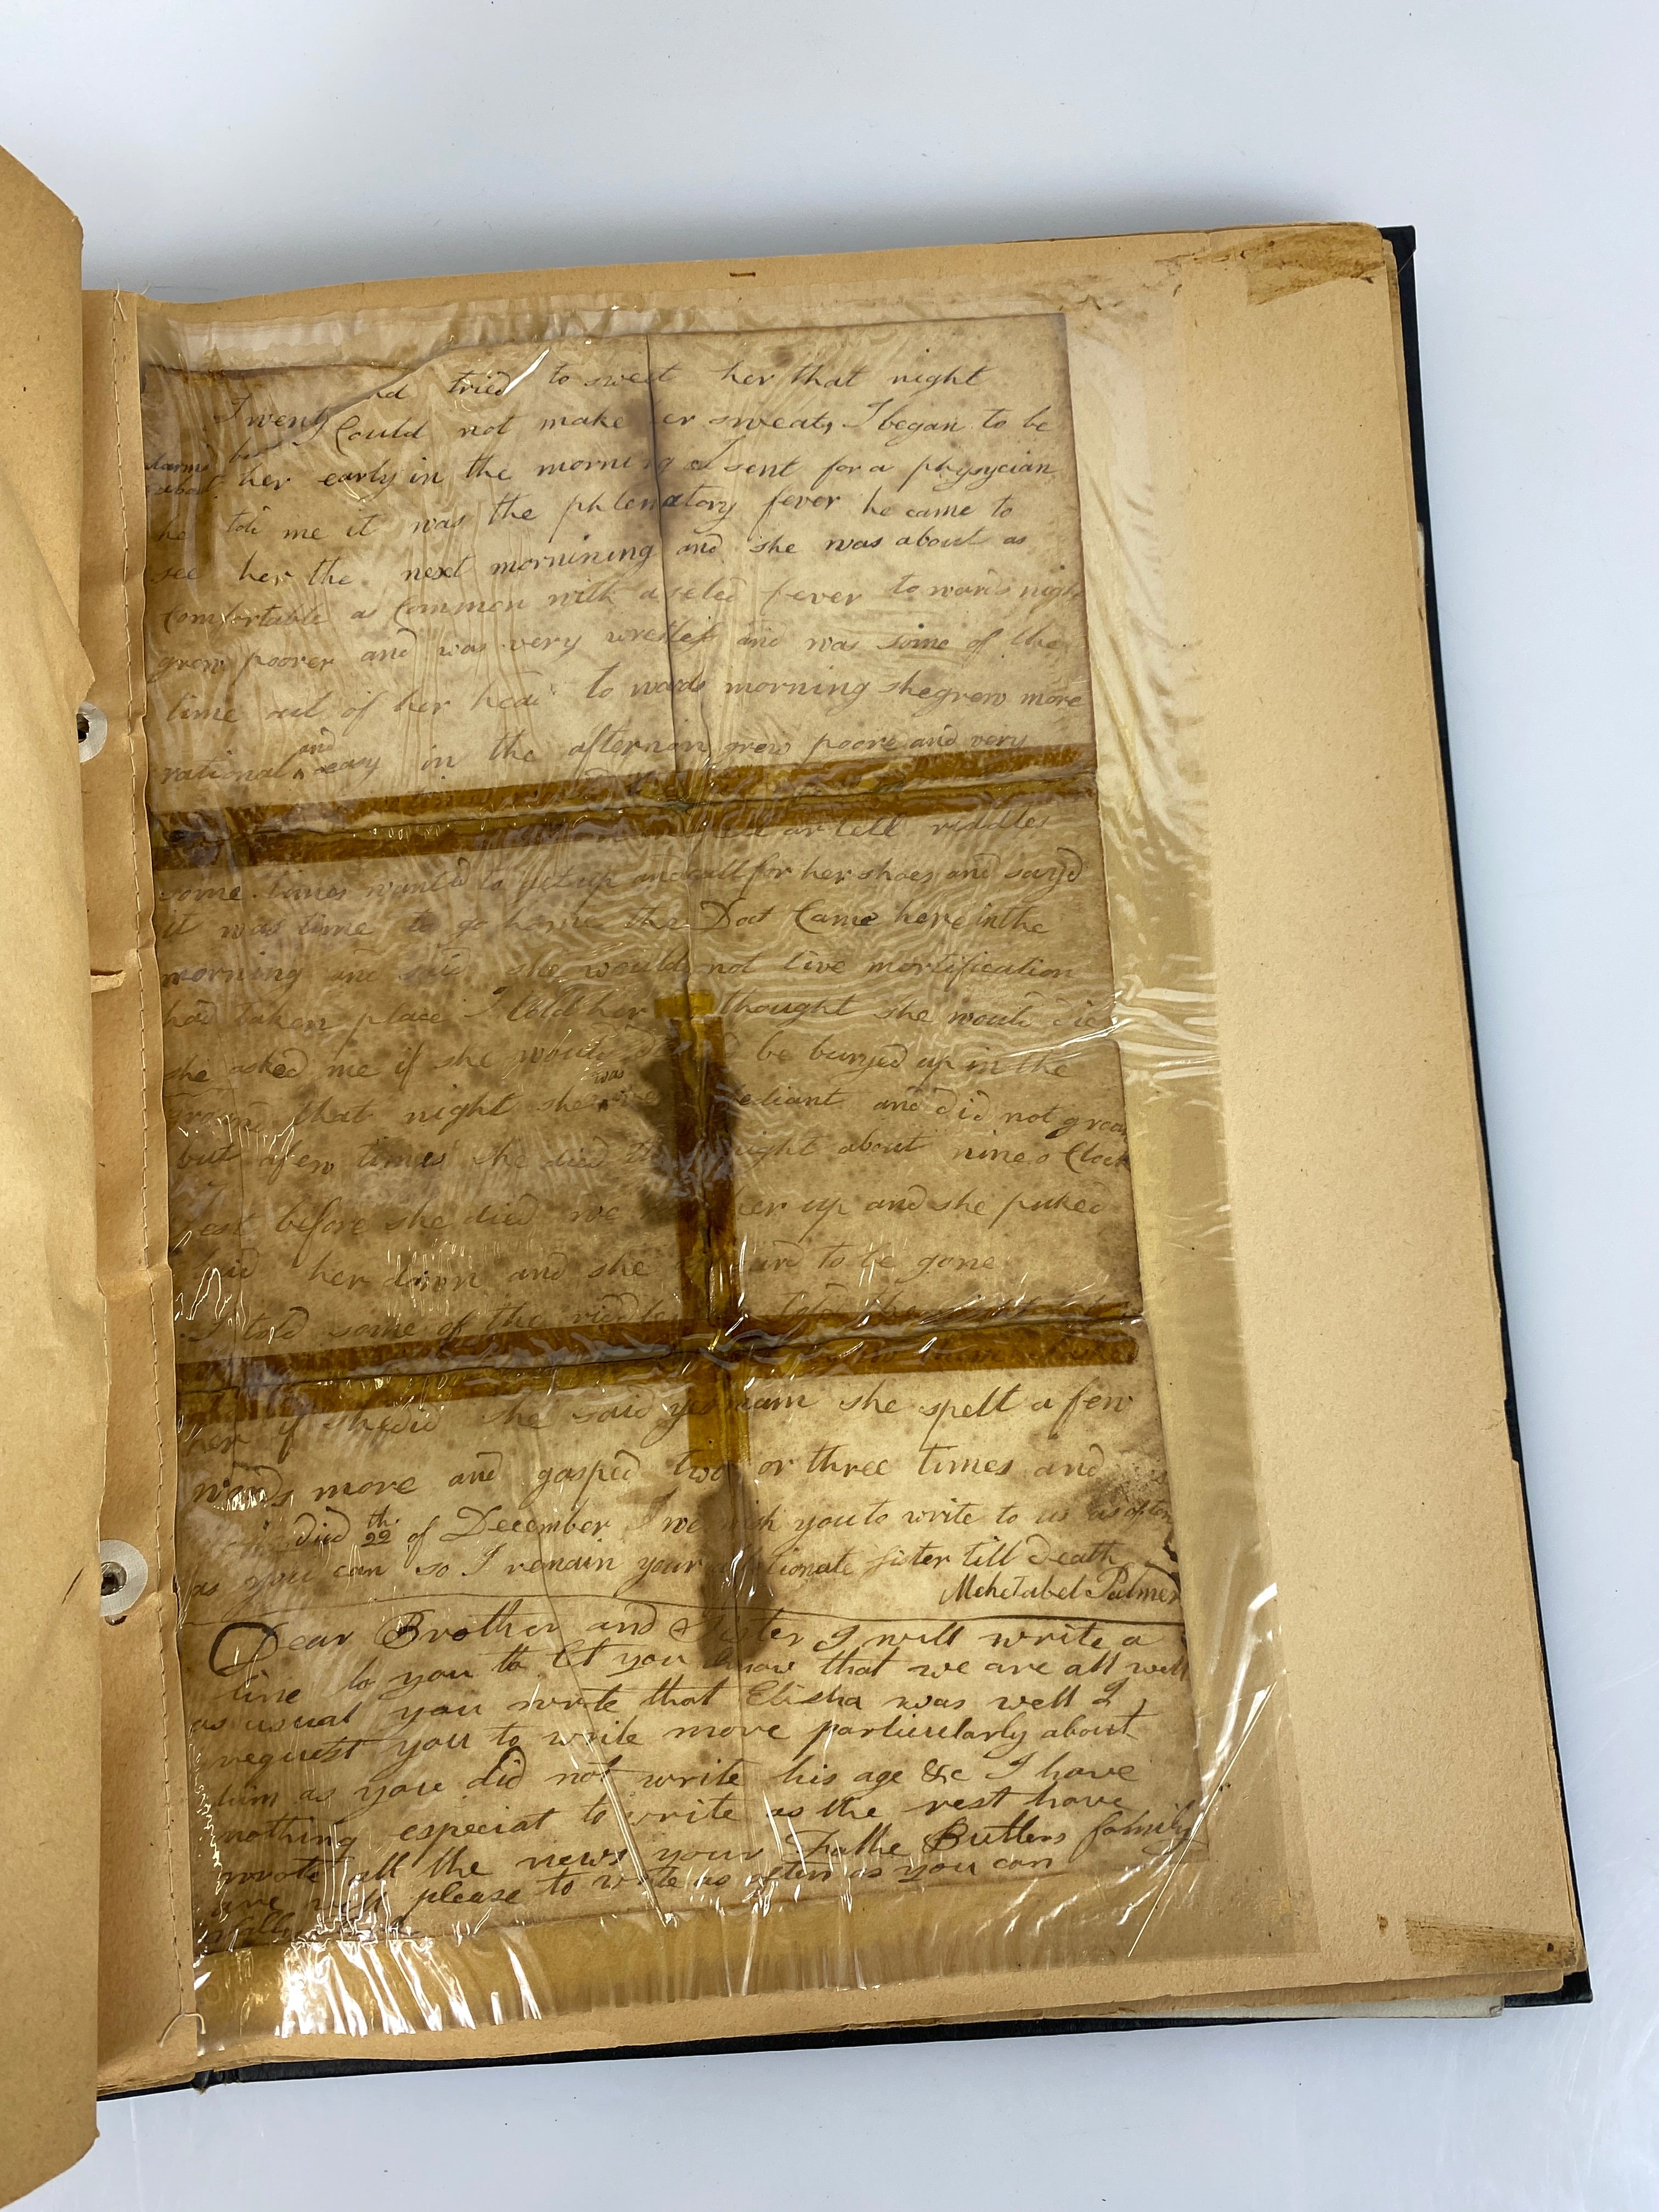 tried to sweet her that night
Could not make er sweat, I began to be
about her early in the morni g I sent for a physycian
he told me it was the phlenatory fever he came to
see her the next mornining and she was about as
Comfortable as Common with a seled fever to wards nigh
grew poorer and was very wrestless and was some of the
time out of her head to wards morning she grew more
rational and easy in the afternoon grew poore and very
or tell riddles
some times wanted to get up and call for her shoes and sayd
it was time to go home the Doct Came here in the
morning and said she would not live mortification
had taken place I told her thought she would die
she asked me if she would be buryed up in the
ground that night she was ediant and did not groan
but a few times she died night about nine o Clock
jest before she died we her up and she puked
laid her down and she to be gone
I told some of the riddle
her if she did she said yes mam she spelt a few
words more and gasped two or three times and
died 22th of December I we wish you to write to us as often
as you can so I remain your tionate sister till death
Mehetabel Palmer
Dear Brother and Sister I will write a
line to you to let you know that we are all well
as usual you write that Elisha was well I
request you to write more particularly about
him as you did not write his age &c I have
nothing especial to write as the rest have
wrote all the news your Fathe Butlers family
are well please to write as often as you can